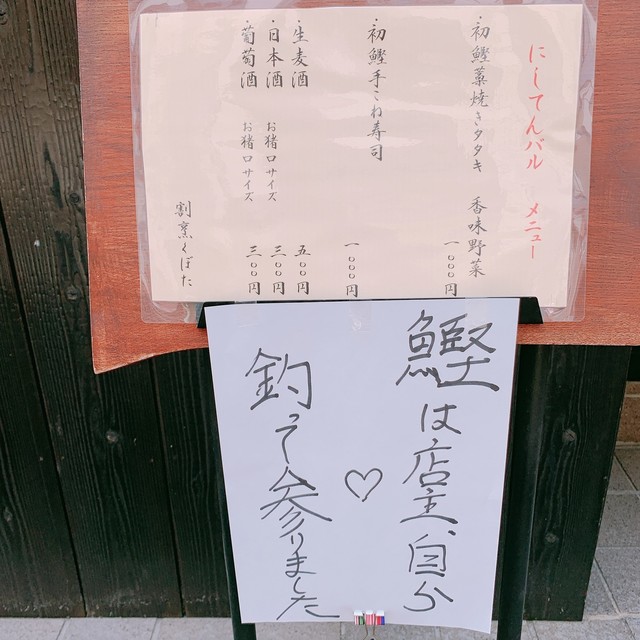 にしてんバル メニュー
・初鰹藁焼きタタキ 香味野菜 一〇〇〇円
・初鰹手こね寿司 一〇〇〇円
・生麦酒 五〇〇円
・日本酒 お猪口サイズ 三〇〇円
・葡萄酒 お猪口サイズ 三〇〇円
割烹くぼた
鰹は店主、自ら
♡
釣って参りました